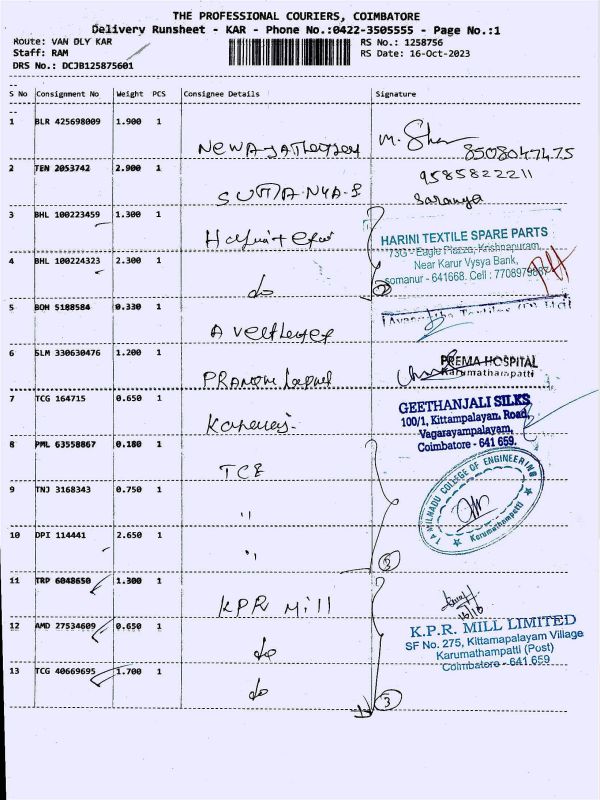 THE PROFESSIONAL COURIERS, COIMBATORE
Delivery Runsheet - KAR - Phone No.:0422-3505555 - Page No.:1
Route: VAN DLY KAR
RS No.: 1258756
Staff: RAM
RS Date: 16-Oct-2023
DRS No.: DCJB125875601
S No Consignment No Weight PCS Consignee Details Signature
1 BLR 425698009 1.900 1
M. Shan
8508047475
2 TEN 2053742 2.900 1
9585822211
Saranya
3 BHL 100223459 1.300 1
HARINI TEXTILE SPARE PARTS
73G - Eagle Plazza, Krishnapuram,
Near Karur Vysya Bank,
somanur - 641668. Cell : 7708979
4 BHL 100224323 2.300 1
do
2
5 BOM 5188584 0.330 1
6 SLM 330630476 1.200 1
PREMA HOSPITAL
Karumathampatti
7 TCG 164715 0.650 1
GEETHANJALI SILKS
100/1, Kittampalayan. Road,
Vagarayampalayam,
Coimbatore - 641 659.
8 PML 63558867 0.180 1
TCE
TAMILNADU COLLEGE OF ENGINEERING
Karumathampatti
9 TNJ 3168343 0.750 1
"
10 DPI 114441 2.650 1
"
3
11 TRP 6048650 1.300 1
KPR Mill
16/10
K.P.R. MILL LIMITED
SF No. 275, Kittamapalayam Village
Karumathampatti (Post)
Coimbatore - 641 659
12 AMD 27534609 0.650 1
do
13 TCG 40669695 1.700 1
do
3